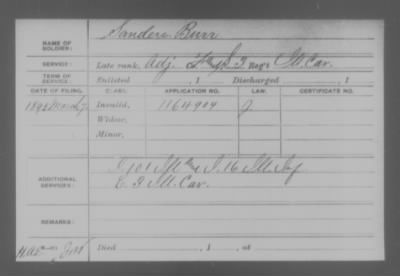 Sanders Burr
NAME OF SOLDIER:
SERVICE: Late rank, Adj. F&S 3 Reg't Ill. Cav.
TERM OF SERVICE: Enlisted , 1 Discharged , 1
DATE OF FILING. CLASS. APPLICATION NO. LAW. CERTIFICATE NO.
1895 March 7 Invalid, 1164904 J
Widow,
Minor,
ADDITIONAL SERVICES: I 16 Ill. Inf
E 3 Ill Cav.
REMARKS:
Died , 1 , at